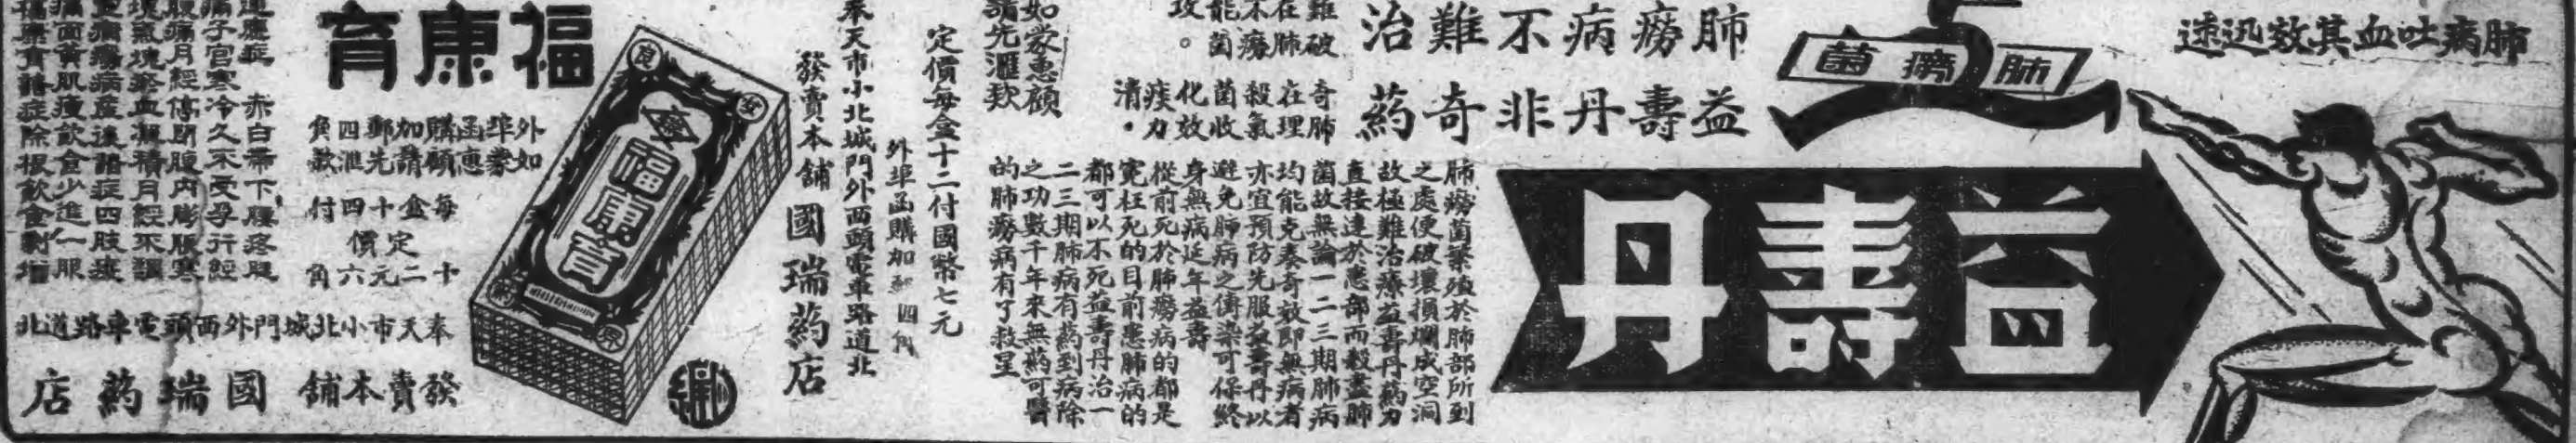 肺病吐血其效迅速
肺癆菌
益壽丹
肺癆病不難治
益壽丹非奇藥
奇肺
在理
殺氣
菌收
化效
痰力
清。
雖破
在肺
不癆
能菌
攻。
肺癆菌繁殖於肺部所到
之處便破壞損爛成空洞
故極難治療益壽丹藥力
直接達於患部而殺盡肺
菌故無論一二三期肺病
均能克奏奇效即無病者
亦宜預防先服益壽丹以
避免肺病之傳染可保終
身無病延年益壽
從前死於肺癆病的都是
冤枉死的目前患肺病的
都可以不死益壽丹治一
二三期肺病有藥到病除
之功數千年來無藥可醫
的肺癆病有了救星
如蒙惠顧
請先滙款
定價每盒十二付國幣七元
外埠函購加郵四角
奉天市小北城門外西頭電車路道北
發賣本舖 國瑞藥店
福康育
福康育
外埠函購加郵四角
如蒙惠顧請先滙款
每盒十四付
定價
十二元六角
奉天市小北城門外西頭電車路道北
發賣本舖 國瑞藥店
適應症 赤白帶下腰疼腿
痛子宮寒冷久不受孕行經
腹痛月經停閉腹内膨脹寒
塊氣塊瘀血凝積月經不調
癆病產後諸症四肢疲
痛面黃肌瘦飲食少進一服
福康育諸症除根飲食劇增